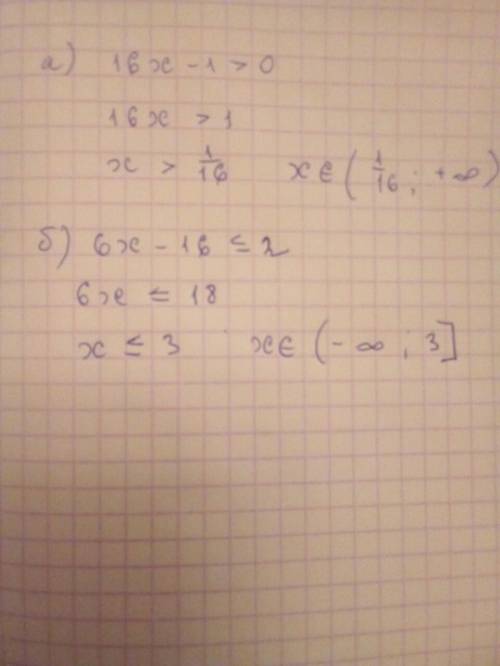 а) 16x - 1 > 0
16x > 1
x > 1/16 x ∈ (1/16; +∞)
б) 6x - 16 ≤ 2
6x ≤ 18
x ≤ 3 x ∈ (-∞; 3]